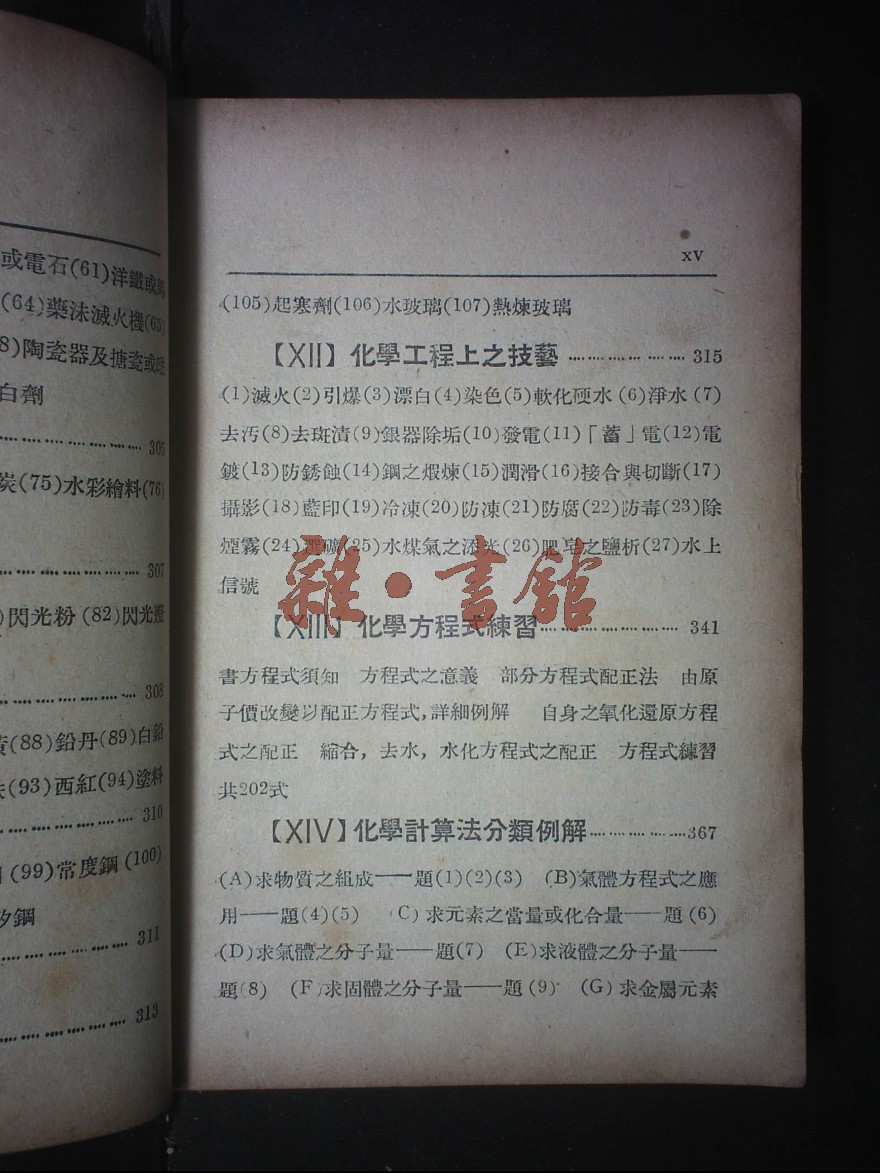 或電石(61)洋鐵或馬
(64)藥沫滅火機(65)
8)陶瓷器及搪瓷或琺
白劑
306
炭(75)水彩繪料(76)
307
)閃光粉 (82)閃光
308
黃(88)鉛丹(89)白鉛
(93)西紅(94)塗料
310
(99)常度鋼(100)
矽鋼
311
313
xv
(105)起寒劑(106)水玻璃(107)熱煉玻璃
【XII】化學工程上之技藝 ……………… 315
(1)滅火(2)引爆(3)漂白(4)染色(5)軟化硬水 (6)淨水 (7)
去汚(8)去斑漬(9)銀器除垢(10)發電(11)「蓄」電(12)電
鍍(13)防銹蝕(14)鋼之煅煉(15)潤滑(16)接合與切斷(17)
攝影(18)藍印(19)冷凍(20)防凍(21)防腐(22)防毒(23)除
煙霧(24)選礦(25)水煤氣之添光(26)肥皂之鹽析(27)水上
信號
雜·書館
【XIII】化學方程式練習 ……………… 341
書方程式須知　方程式之意義　部分方程式配正法　由原
子價改變以配正方程式,詳細例解　自身之氧化還原方程
式之配正　縮合,去水,水化方程式之配正　方程式練習
共202式
【XIV】化學計算法分類例解 ……………367
(A)求物質之組成——題(1)(2)(3)　(B)氣體方程式之應
用——題(4)(5)　(C)求元素之當量或化合量——題(6)
(D)求氣體之分子量——題(7)　(E)求液體之分子量——
題(8)　(F)求固體之分子量——題(9)　(G)求金屬元素